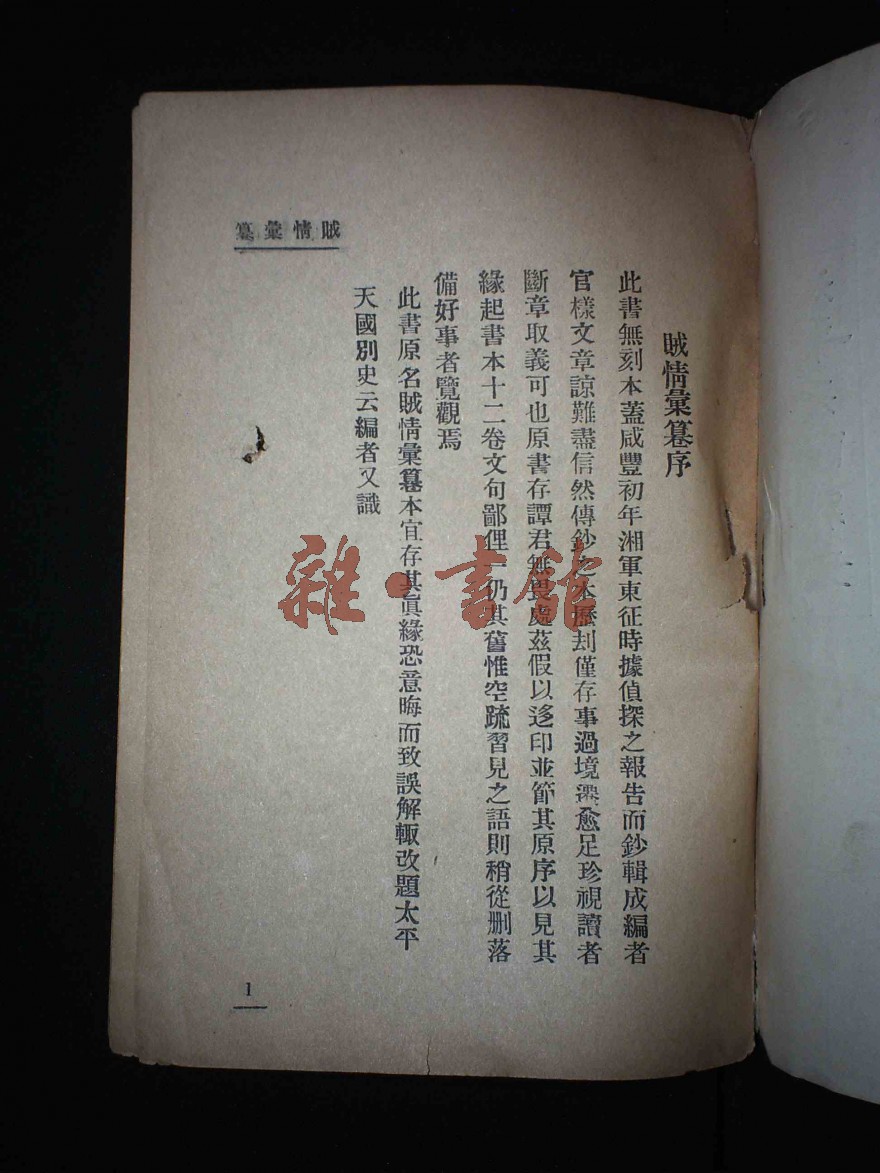 賊情彙篡
賊情彙篡序
此書無刻本蓋咸豐初年湘軍東征時據偵探之報告而鈔輯成編者
官樣文章諒難盡信然傳鈔之本歷刦僅存事過境遷愈足珍視讀者
斷章取義可也原書存譚君無畏處茲假以迻印並節其原序以見其
緣起書本十二卷文句鄙俚一仍其舊惟空疏習見之語則稍從删落
備好事者覽觀焉
此書原名賊情彙篡本宜存其眞緣恐意晦而致誤解輙改題太平
天國別史云編者又識
1
雜·書館